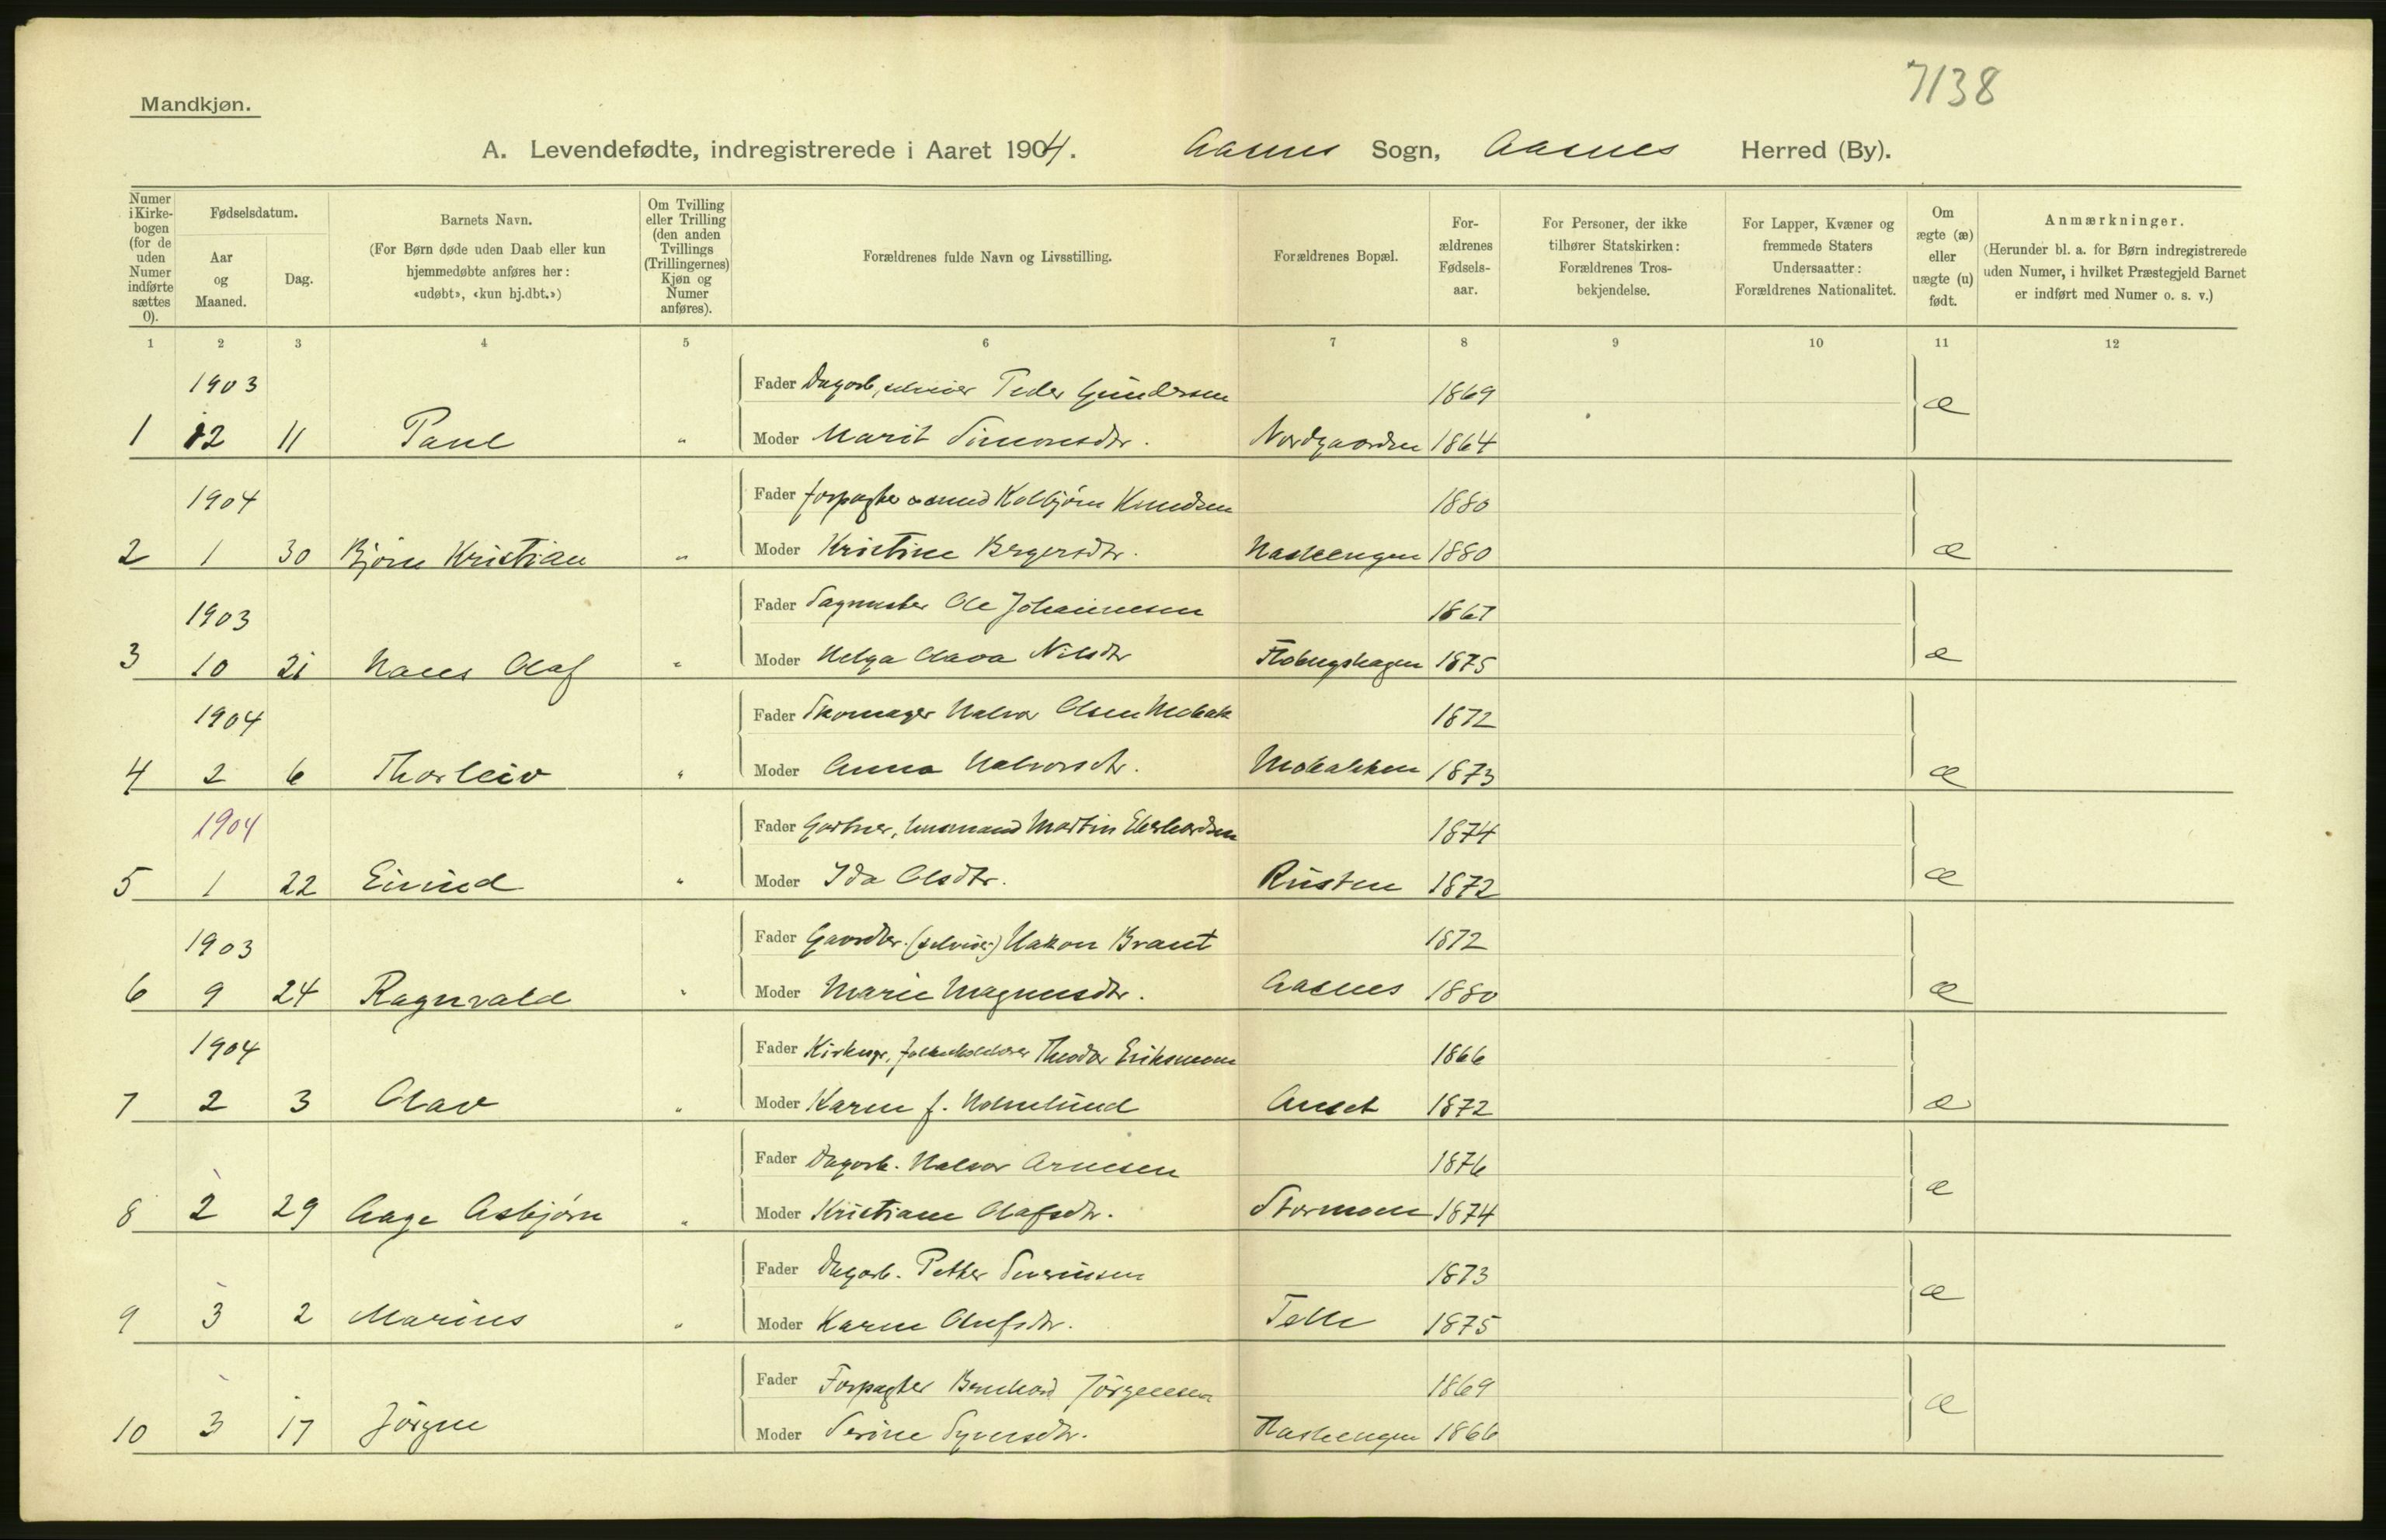 7138
Mandkjøn.
A. Levendefødte, indregistrerede i Aaret 1904. Aasnes Sogn, Aasnes Herred (By).
Numer i Kirke-bogen (for de uden Numer indførte sættes 0).
Fødselsdatum.
Aar og Maaned.
Dag.
Barnets Navn.
(For Børn døde uden Daab eller kun hjemmedøbte anføres her: «udøbt», «kun hj.dbt.»)
Om Tvilling eller Trilling (den anden Tvillings (Trillingernes) Kjøn og Numer anføres).
Forældrenes fulde Navn og Livsstilling.
Forældrenes Bopæl.
For-ældrenes Fødsels-aar.
For Personer, der ikke tilhører Statskirken: Forældrenes Tros-bekjendelse.
For Lapper, Kvæner og fremmede Staters Undersaatter: Forældrenes Nationalitet.
Om ægte (æ) eller uægte (u) født.
Anmærkninger.
(Herunder bl. a. for Børn indregistrerede uden Numer, i hvilket Præstegjeld Barnet er indført med Numer o. s. v.)
1 2 3 4 5 6 7 8 9 10 11 12
1903 Fader Dagarb., selveier Peder Gundersen 1869 æ
1 12 11 Paul " Moder Marit Simonsdtr. Nordgaarden 1864
1904 Fader Forpagter Kolbjørn Knudsen 1880
2 1 30 Bjørn Kristian " Moder Kristine Bergersdtr. Hasleengen 1880 æ
1903 Fader Sagmester Ole Johannesen 1867
3 10 21 Hans Olaf " Moder Helga Olava Nilsdtr 1875 æ
1904 Fader Skomager Halvor Olsen Mobak 1872
4 2 6 Thorleiv " Moder Anna Halvorsdtr. Mobakken 1873 æ
1904 Fader Gartner, husmand Martin Eberhardsen 1874
5 1 22 Eivind " Moder Ida Olsdtr. Rusten 1872 æ
1903 Fader Gaardbr. (selveier) Hakon Brant 1872
6 9 24 Ragnvald " Moder Marie Magnusdtr. Aasnes 1880 æ
1904 Fader Kirkesgr. Theodor Eriksmoen 1866
7 2 3 Olav " Moder Karen f. Holmlund Anset 1872 æ
Fader Dagarb. Halvor Arnesen 1876
8 2 29 Aage Asbjørn " Moder Kristiane Olafsdtr. Stormoen 1874 æ
Fader Dagarb. Petter Severinsen 1873
9 3 2 Marius " Moder Karen Olufsdtr. Telle 1875 æ
Fader Forpagter Bernhard Jörgensen 1869
10 3 17 Jörgen Moder Serine Syversdtr. Hasleengen 1866 æ